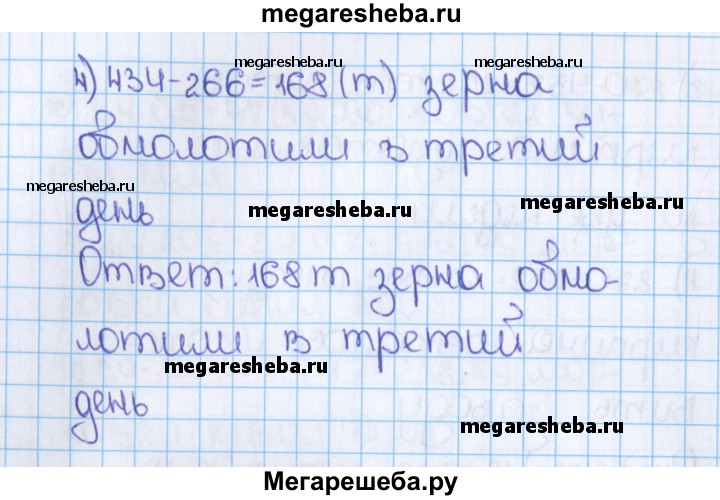 megaresheba.ru
megaresheba.ru
megaresheba.ru
4) 434-266=168 (т) зерна
обмолотили в третий
megaresheba.ru
день
megaresheba.ru
megaresheba.ru
Ответ: 168 т зерна обмо-
лотили в третий
megaresheba.ru
день
megaresheba.ru
Мегарешеба.ру